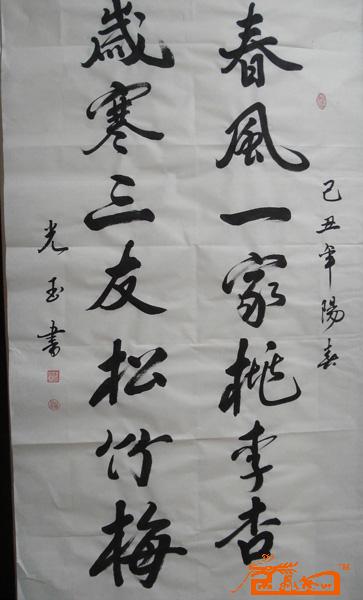 己丑年陽春
春風一家桃李杏
歲寒三友松竹梅
光玉書